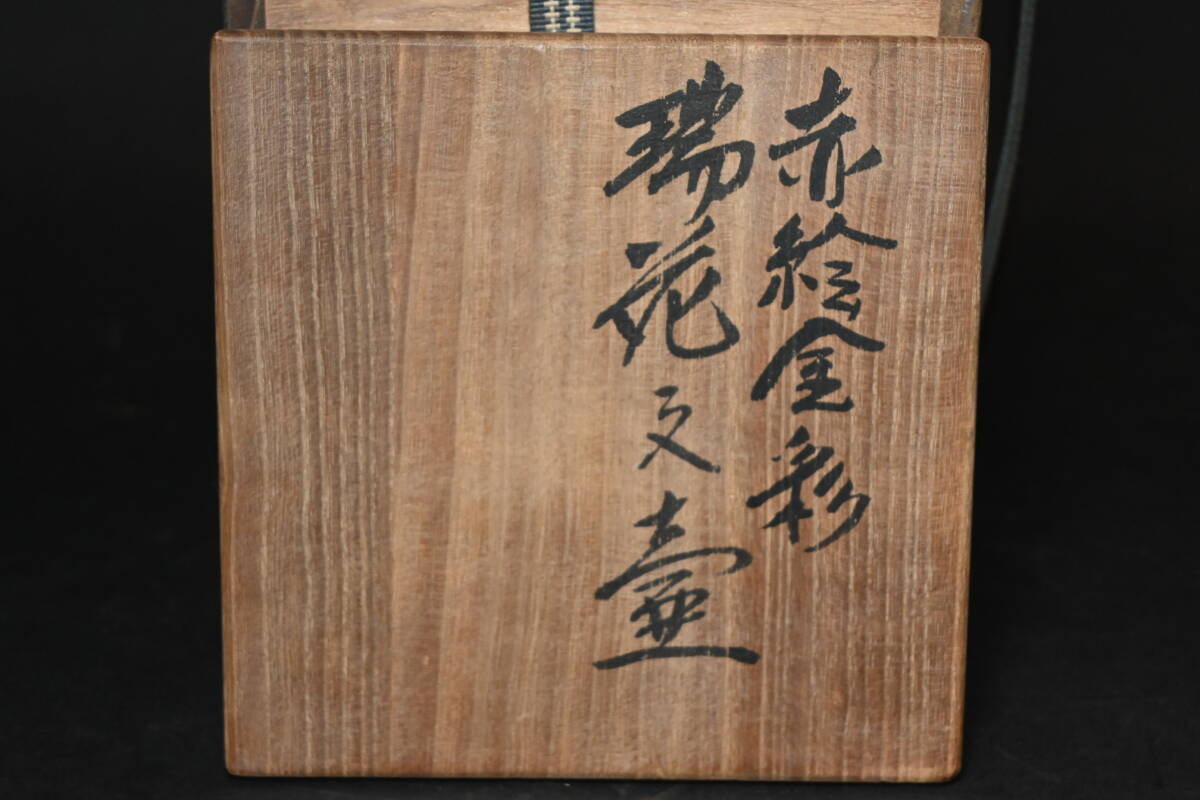 赤絵金彩
瑞花文壷